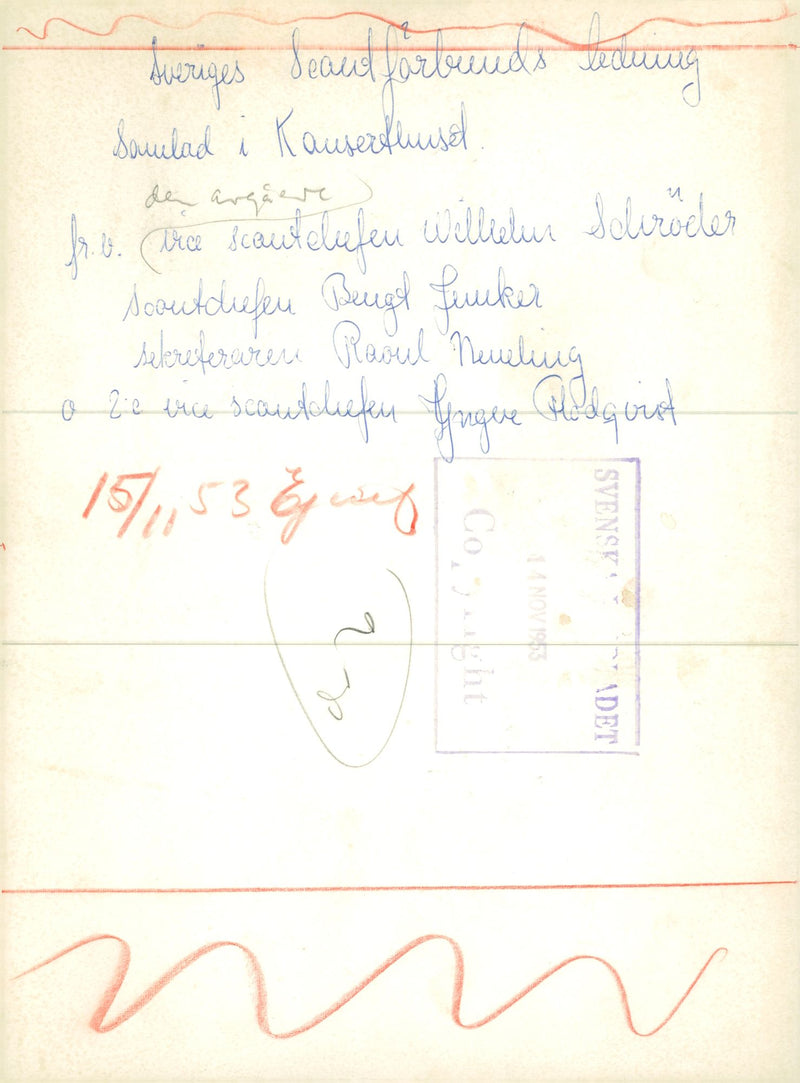 Sveriges Scoutförbunds ledning
Samlad i Konserthuset.
den avgående
fr. v. vice scoutchefen Wilhelm Schröder
Scoutchefen Bengt Junker
sekreteraren Raoul Neveling
o 2:e vice scoutchefen Yngve Flodqvist
15/11 53 Ej inf
SVENSKA DAGBLADET
14 NOV 1953
Copyright